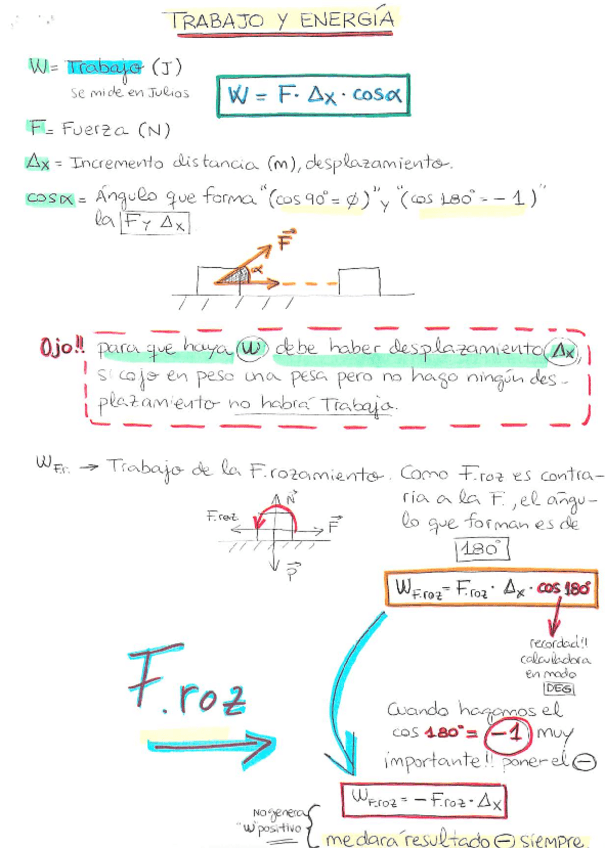 TRABAJO Y ENERGÍA
W = Trabajo (J)
Se mide en Julios
W = F · Δx · cosα
F = Fuerza (N)
Δx = Incremento distancia (m), desplazamiento.
cosα = Ángulo que forma "(cos 90° = ∅)" y "(cos 180° = -1)"
la F y Δx
F
α
Ojo!! para que haya W debe haber desplazamiento Δx,
si cojo en peso una pesa pero no hago ningún des-
plazamiento no habrá Trabajo.
W Fr. → Trabajo de la F.rozamiento. Como F.roz es contra-
ria a la F., el ángu-
lo que forman es de
180°
N
F.roz
F
P
W F.roz = F.roz · Δx · cos 180°
recordad!!
calculadora
en modo
DEG
F.roz
Cuando hagamos el
cos 180° = -1 muy
importante!! poner el -
W F.roz = - F.roz · Δx
No genera
"W" positivo
me dará resultado - siempre